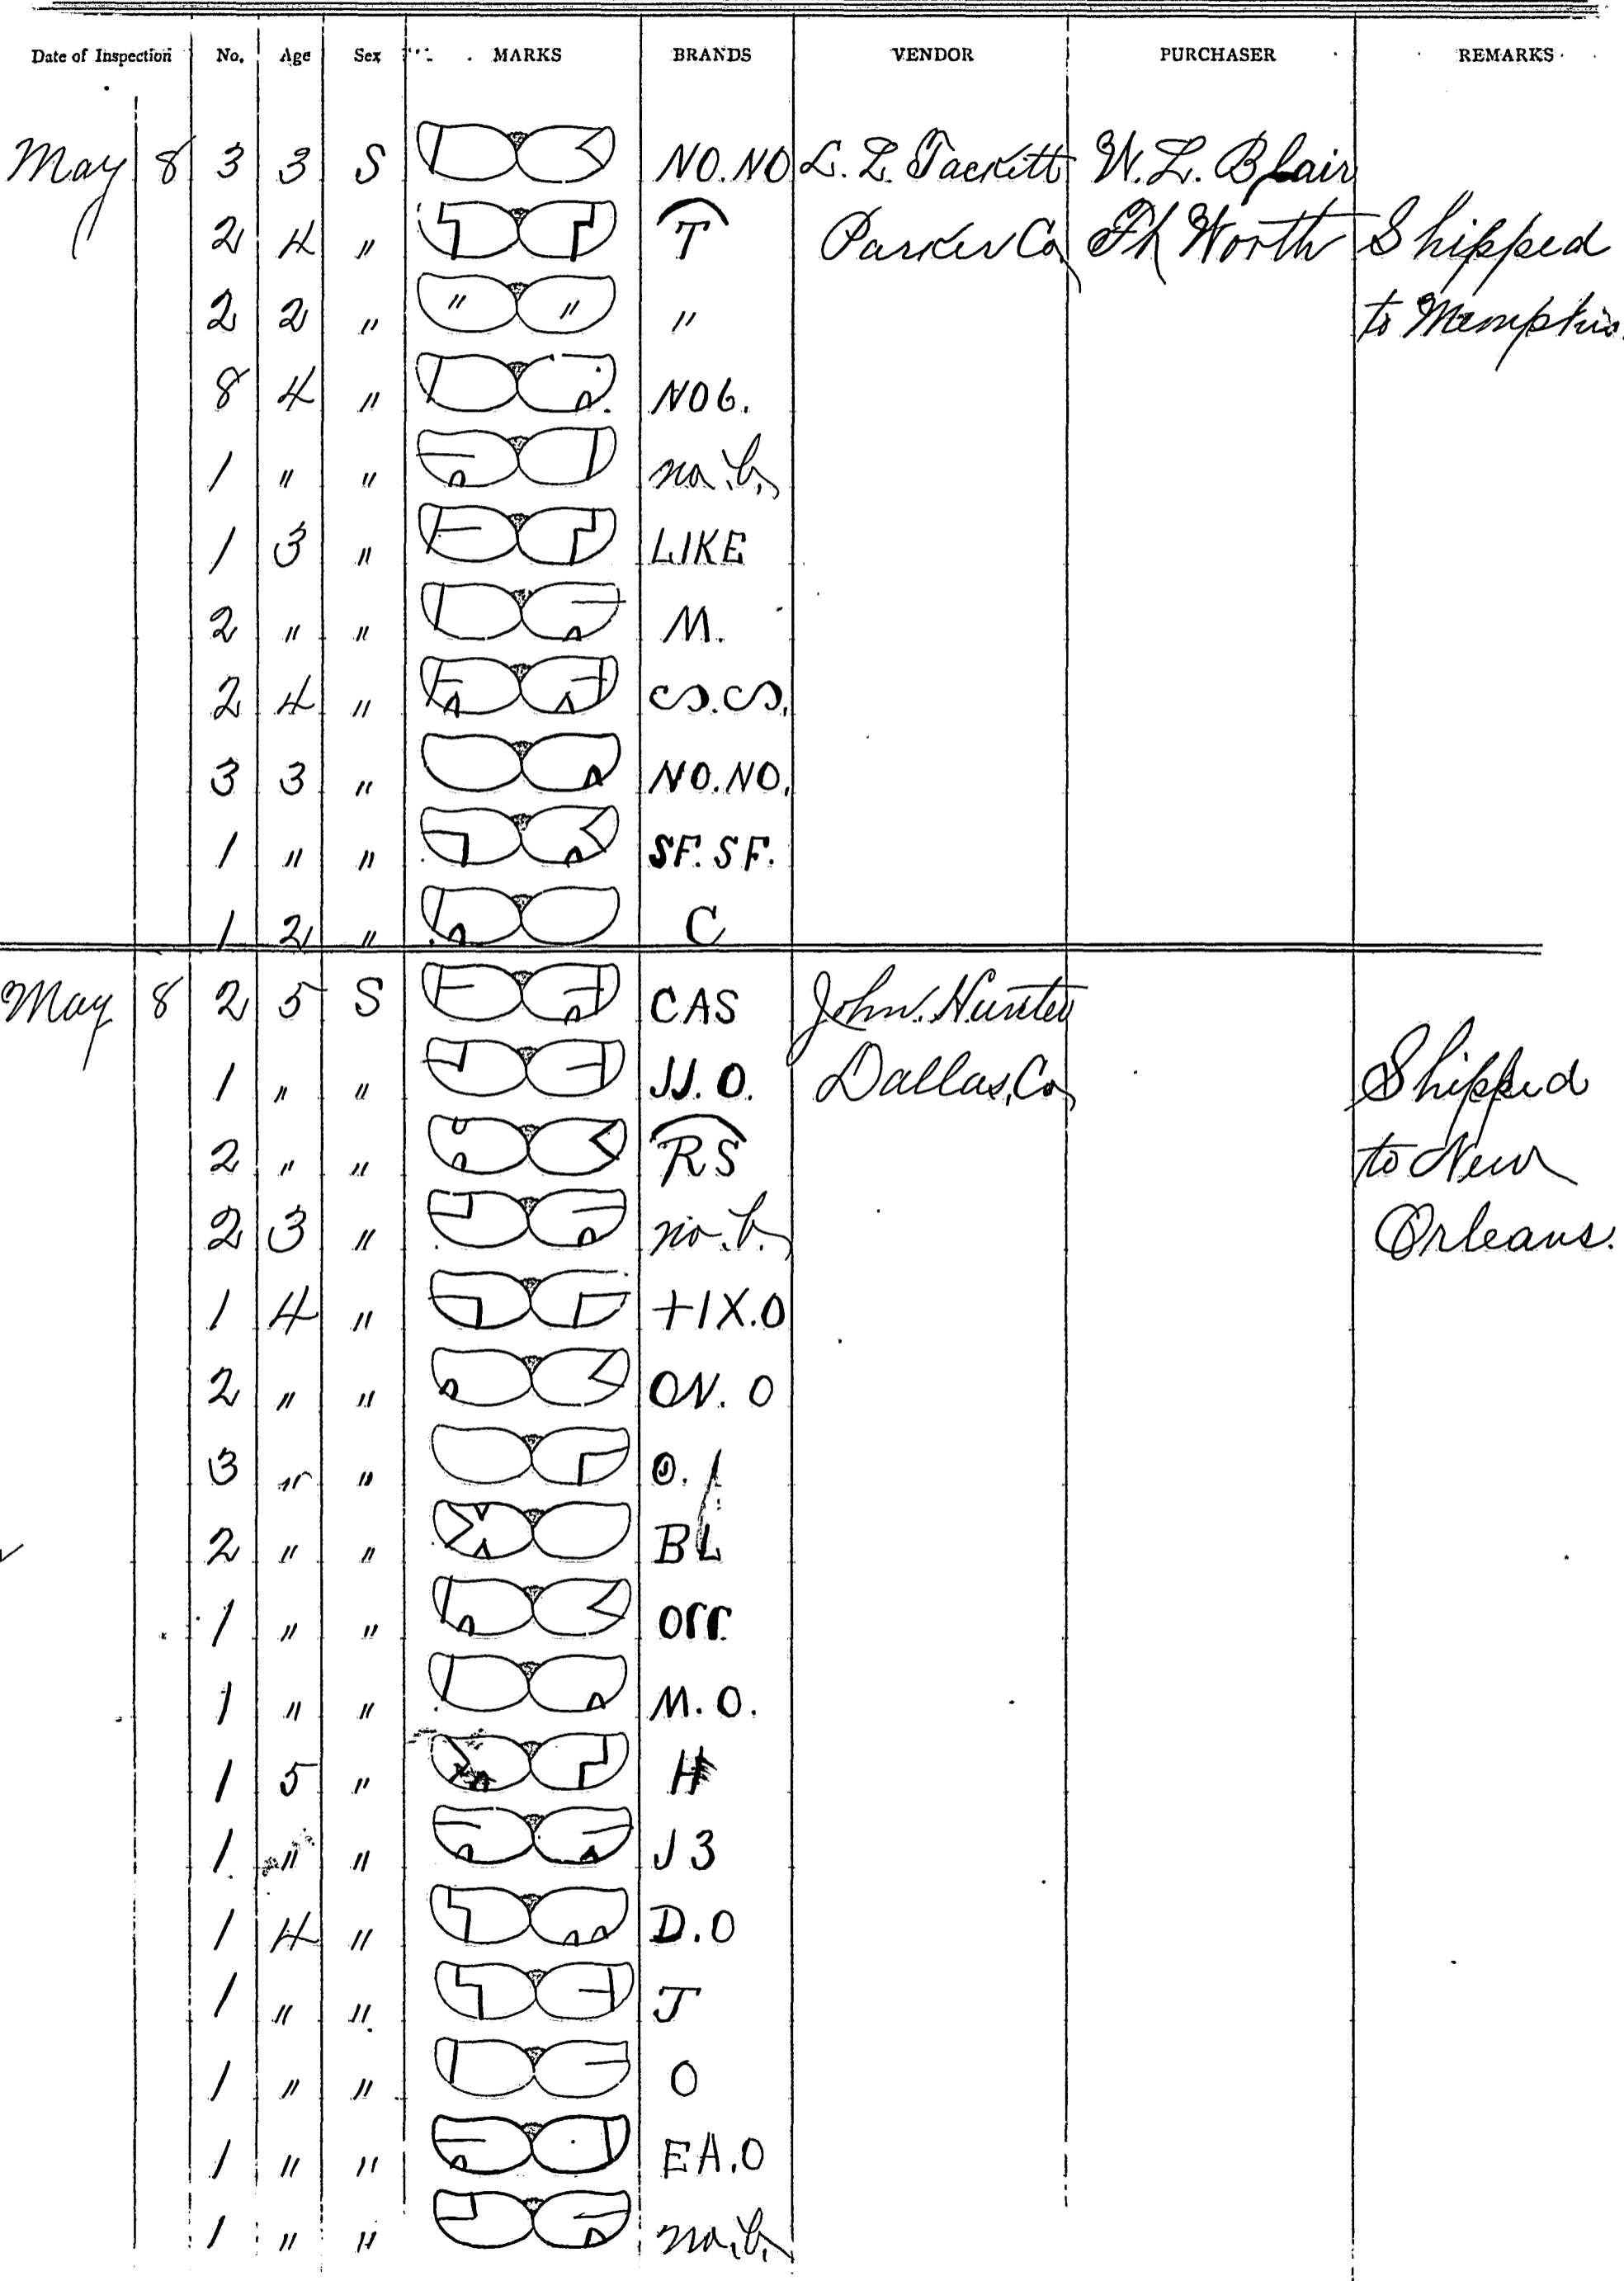 Date of Inspection No. Age Sex MARKS BRANDS VENDOR PURCHASER REMARKS
May 8 3 3 S NO.NO L. L. Tackitt W. L. Blair
2 4 " T Parker Co, Ft Worth Shipped
2 2 " " " " to Memphis.
8 4 " NO6.
1 " " no. b.
1 3 " LIKE
2 " " M.
2 4 "
3 3 " NO.NO.
1 " " SF. SF.
1 2 " C
May 8 2 5 S CAS John. Hunter
1 " " JJ. O. Dallas, Co, Shipped
2 " " RS to New
2 3 " no. b. Orleans.
1 4 " +IX.O
2 " " ON. O
3 " " O.
2 " " BL
1 " " orr
1 " " M. O.
1 5 " H
1. " " J 3
1 4 " D.O
1 " " J
1 " " O
1 " " EA.O
1 " " no. b.